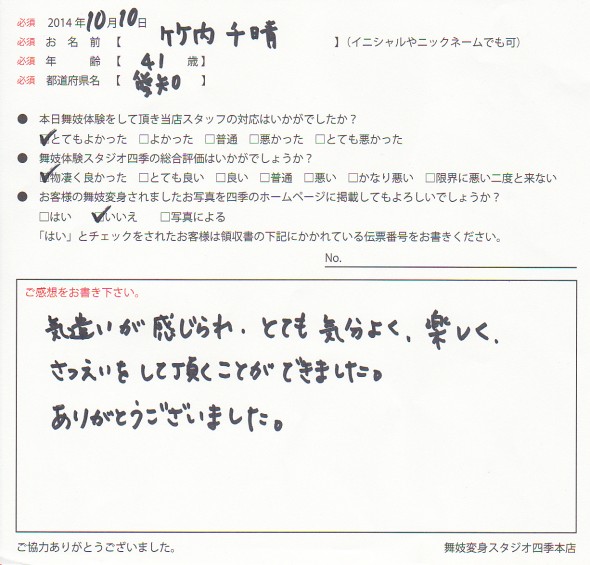 必須 2014年10月10日
必須 お名前【 竹内 千晴 】(イニシャルやニックネームでも可)
必須 年齢【 41 歳】
必須 都道府県名【 愛知 】
● 本日舞妓体験をして頂き当店スタッフの対応はいかがでしたか?
☑とてもよかった □よかった □普通 □悪かった □とても悪かった
● 舞妓体験スタジオ四季の総合評価はいかがでしょうか?
☑物凄く良かった □とても良い □良い □普通 □悪い □かなり悪い □限界に悪い二度と来ない
● お客様の舞妓変身されましたお写真を四季のホームページに掲載してもよろしいでしょうか?
□はい ☑いいえ □写真による
「はい」とチェックをされたお客様は領収書の下記にかかれている伝票番号をお書きください。
No.
ご感想をお書き下さい。
気遣いが感じられ、とても気分よく、楽しく、
さつえいをして頂くことができました。
ありがとうございました。
ご協力ありがとうございました。 舞妓変身スタジオ四季本店